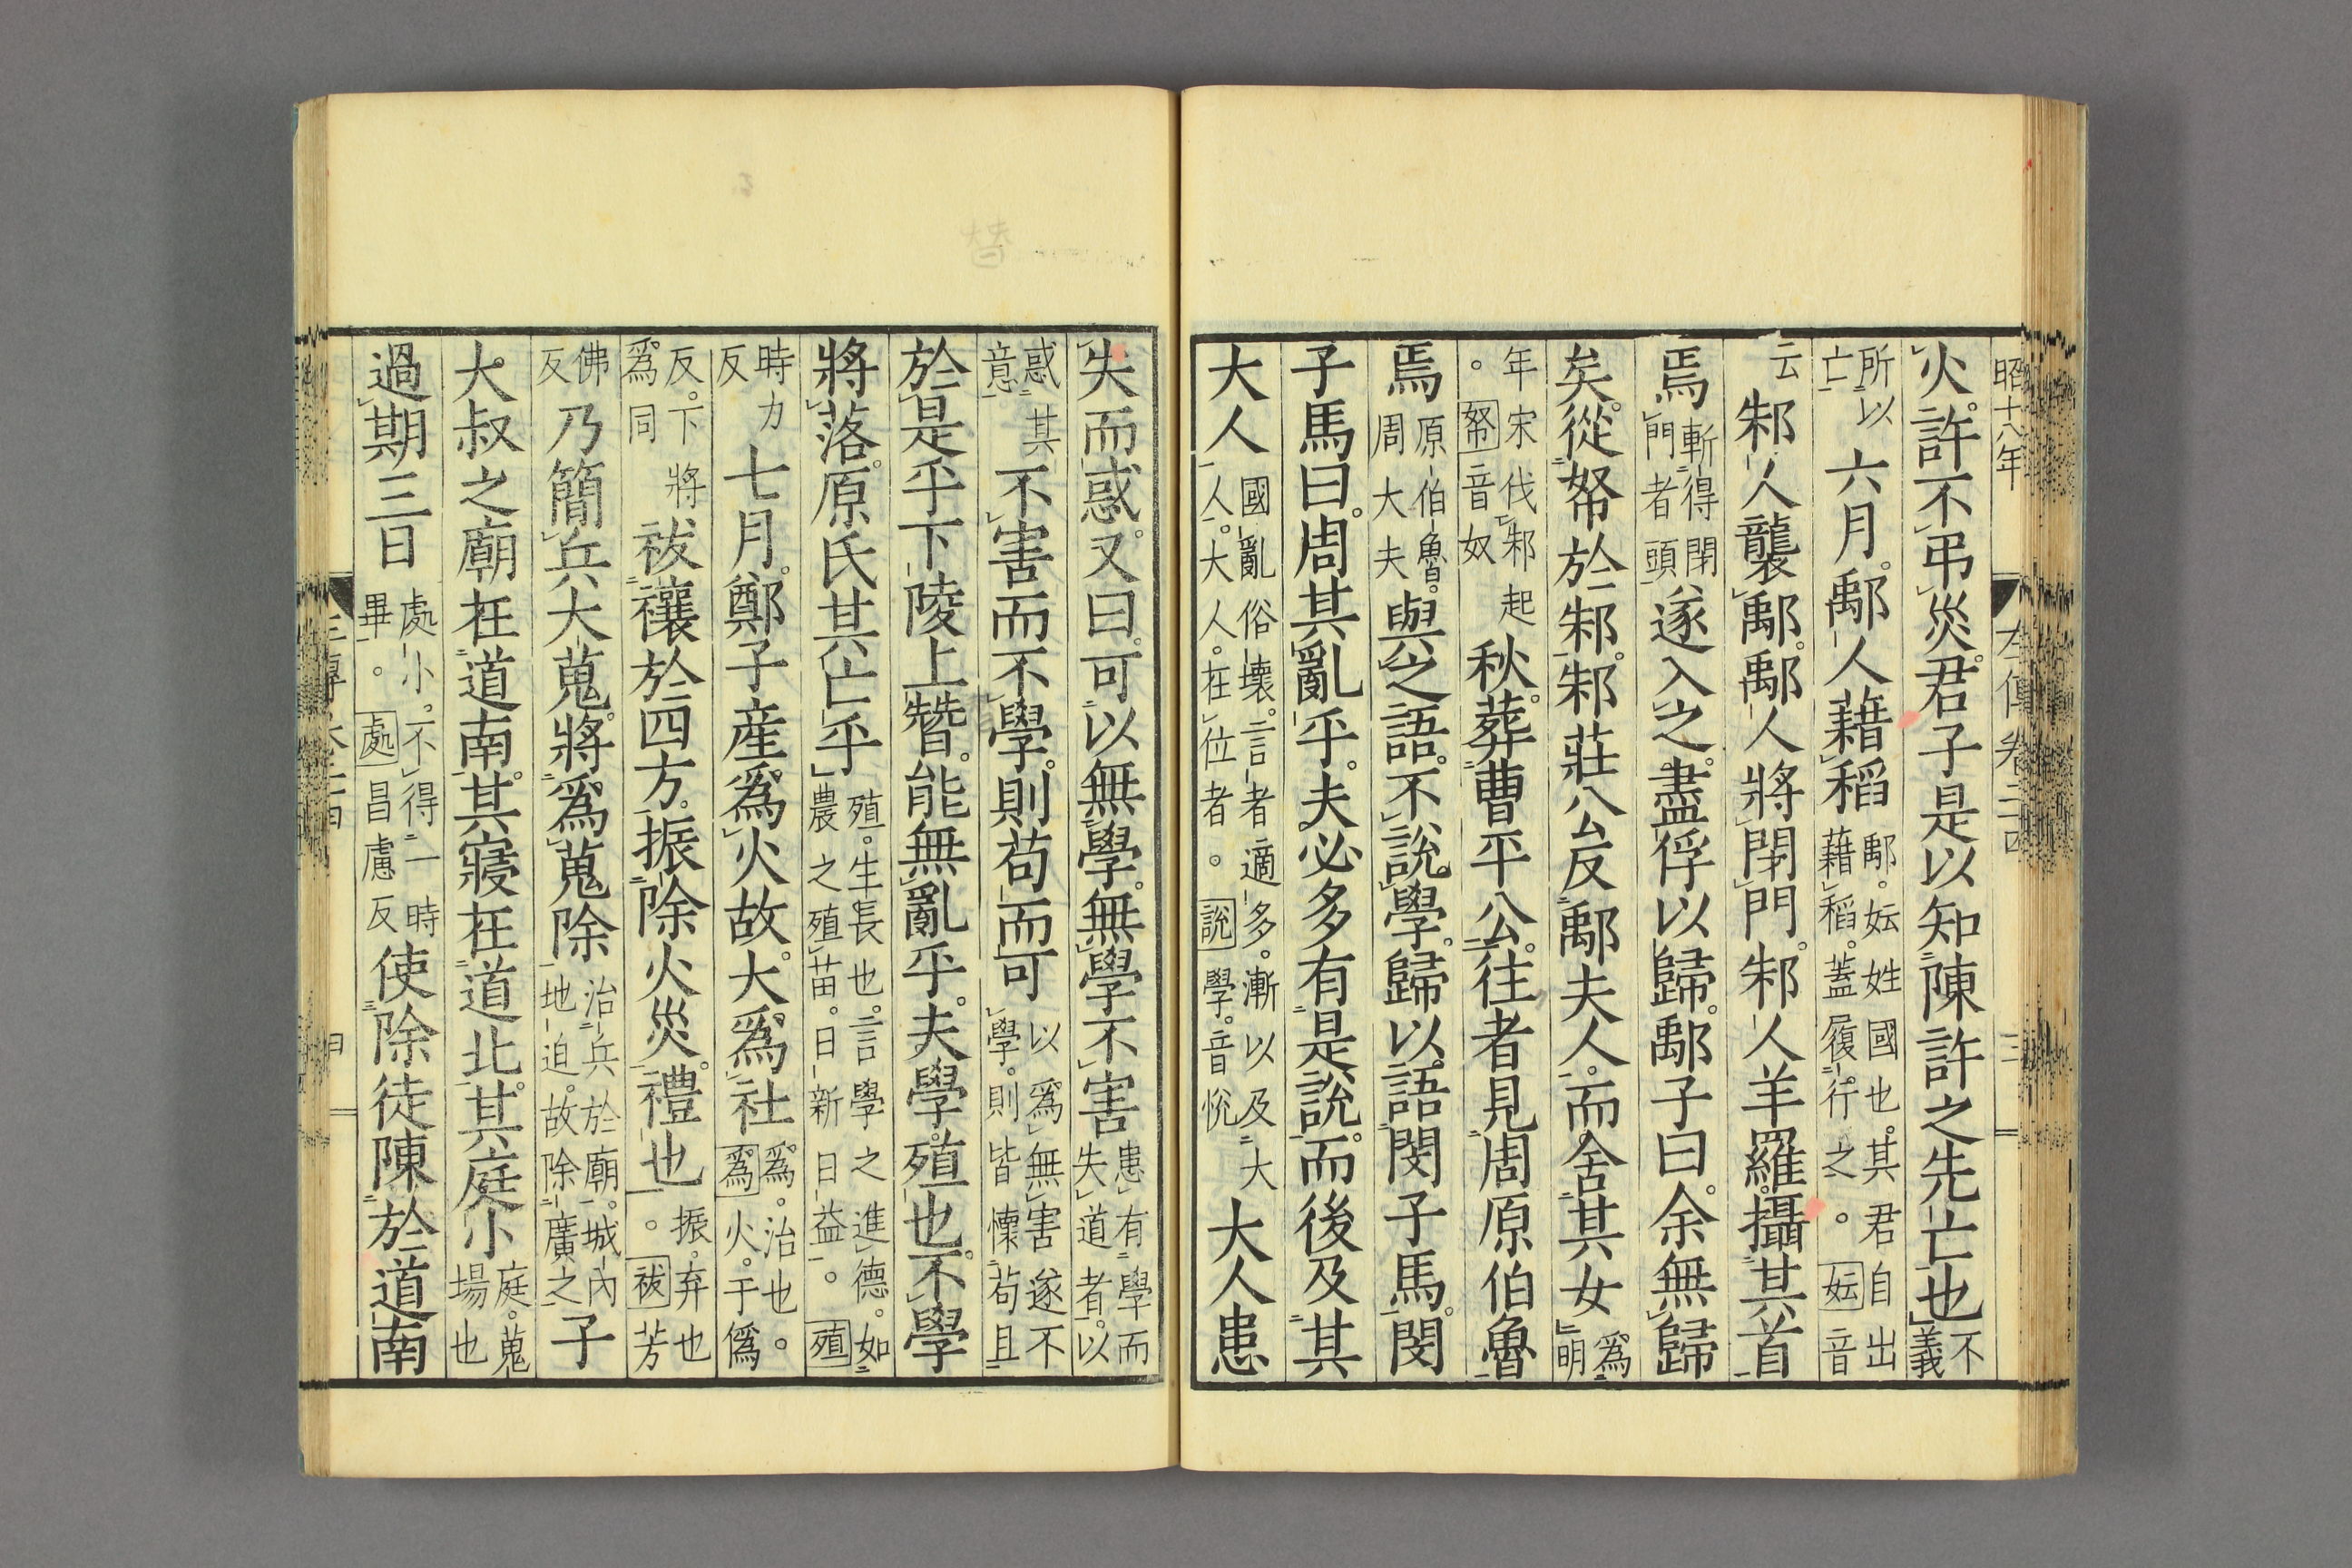 昭十八年
左傳卷二四
三
火。許不弔災。君子是以知陳許之先亡也不義
所以亡六月。鄅人藉稻鄅。妘姓國也。其君自出藉稻。蓋履行之。妘音
云邾人襲鄅。鄅人將閉門。邾人羊羅。攝其首
焉斬得閉門者頭遂入之。盡俘以歸。鄅子曰。余無歸
矣。從帑於邾。邾莊公反鄅夫人。而舍其女爲明
年宋伐邾起。帑音奴秋。葬曹平公。往者見周原伯魯
焉原伯魯。周大夫與之語。不說學。歸以語閔子馬。閔
子馬曰。周其亂乎。夫必多有是說。而後及其
大人國亂俗壞。言者適多。漸以及大人。大人。在位者。說學。音悅大人患
失而惑。又曰。可以無學。無學不害患有學而失道者。以
惑其意不害而不學。則苟而可以爲無害遂不學。則皆懷苟且
於是乎下陵上替。能無亂乎。夫學。殖也。不學
將落。原氏其亡乎殖。生長也。言學之進德。如農之殖苗。日新日益。殖
時力反七月。鄭子產爲火故。大爲社爲。治也。爲火。于僞
反。下將爲同祓禳於四方。振除火災。禮也振。弃也。祓芳
佛反乃簡兵大蒐。將爲蒐除治兵於廟。城內地迫。故除廣之子
大叔之廟在道南。其寢在道北。其庭小庭。蒐場也
過期三日處小。不得一時畢。處昌慮反使除徒陳於道南